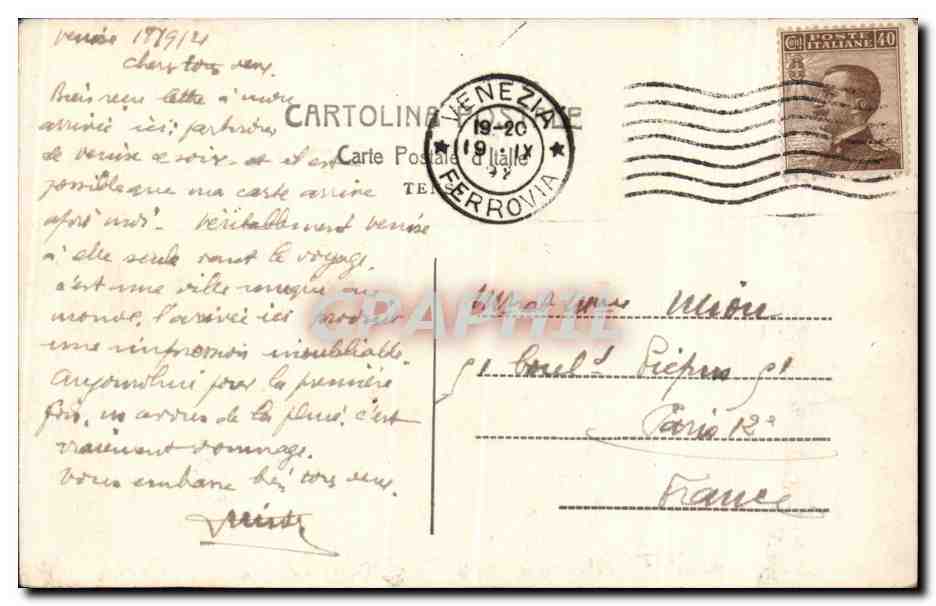 Venise 18/9/21
Chers tous deux.
Bien reçu lettre à mon
arrivée ici; partirons
de Venise ce soir et il est
possible que ma carte arrive
après moi. Véritablement Venise
à elle seule vaut le voyage,
c'est une ville unique au
monde. l'arrivée ici produit
une impression inoubliable.
Aujourd'hui pour la première
fois, us avons de la pluie. c'est
vraiment dommage.
Vous embrasse bien tous deux.
CARTOLINA POSTALE
Carte Postale d'Italie
VENEZIA
19-20
19 · IX
FERROVIA
POSTE
ITALIANE
Cent 40
CPAPHIL
Mr et Mme Mion
91 boul.d Picpus 91
Paris 12e
France